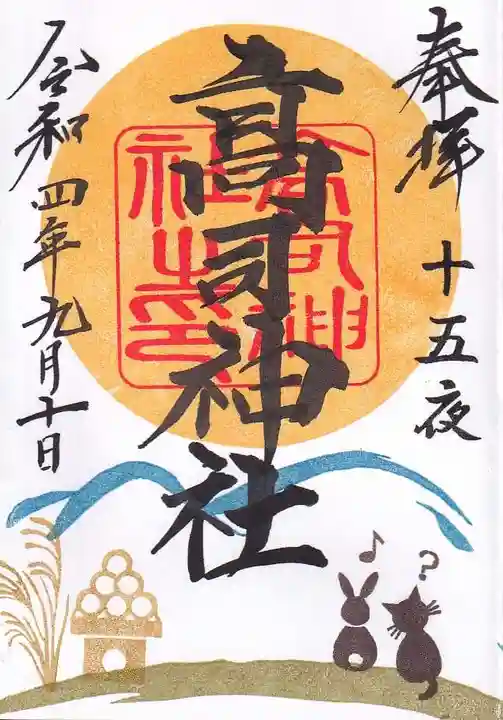 奉拝 十五夜
高司神社
高司神社之印
令和四年九月十日
♪ ?